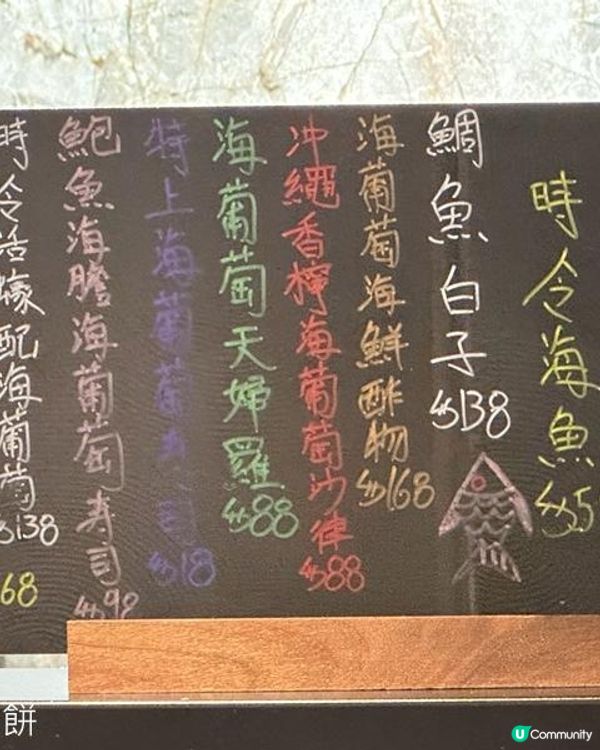 時令海魚
鯛魚白子
$138
海葡萄海鮮酢物
$168
沖繩香檸海葡萄沙律
$88
海葡萄天婦羅
$88
特上海葡萄寿司
$18
鮑魚海膽海葡萄寿司
$98
時令活蠔配海葡萄
$138
68
餅
U Community